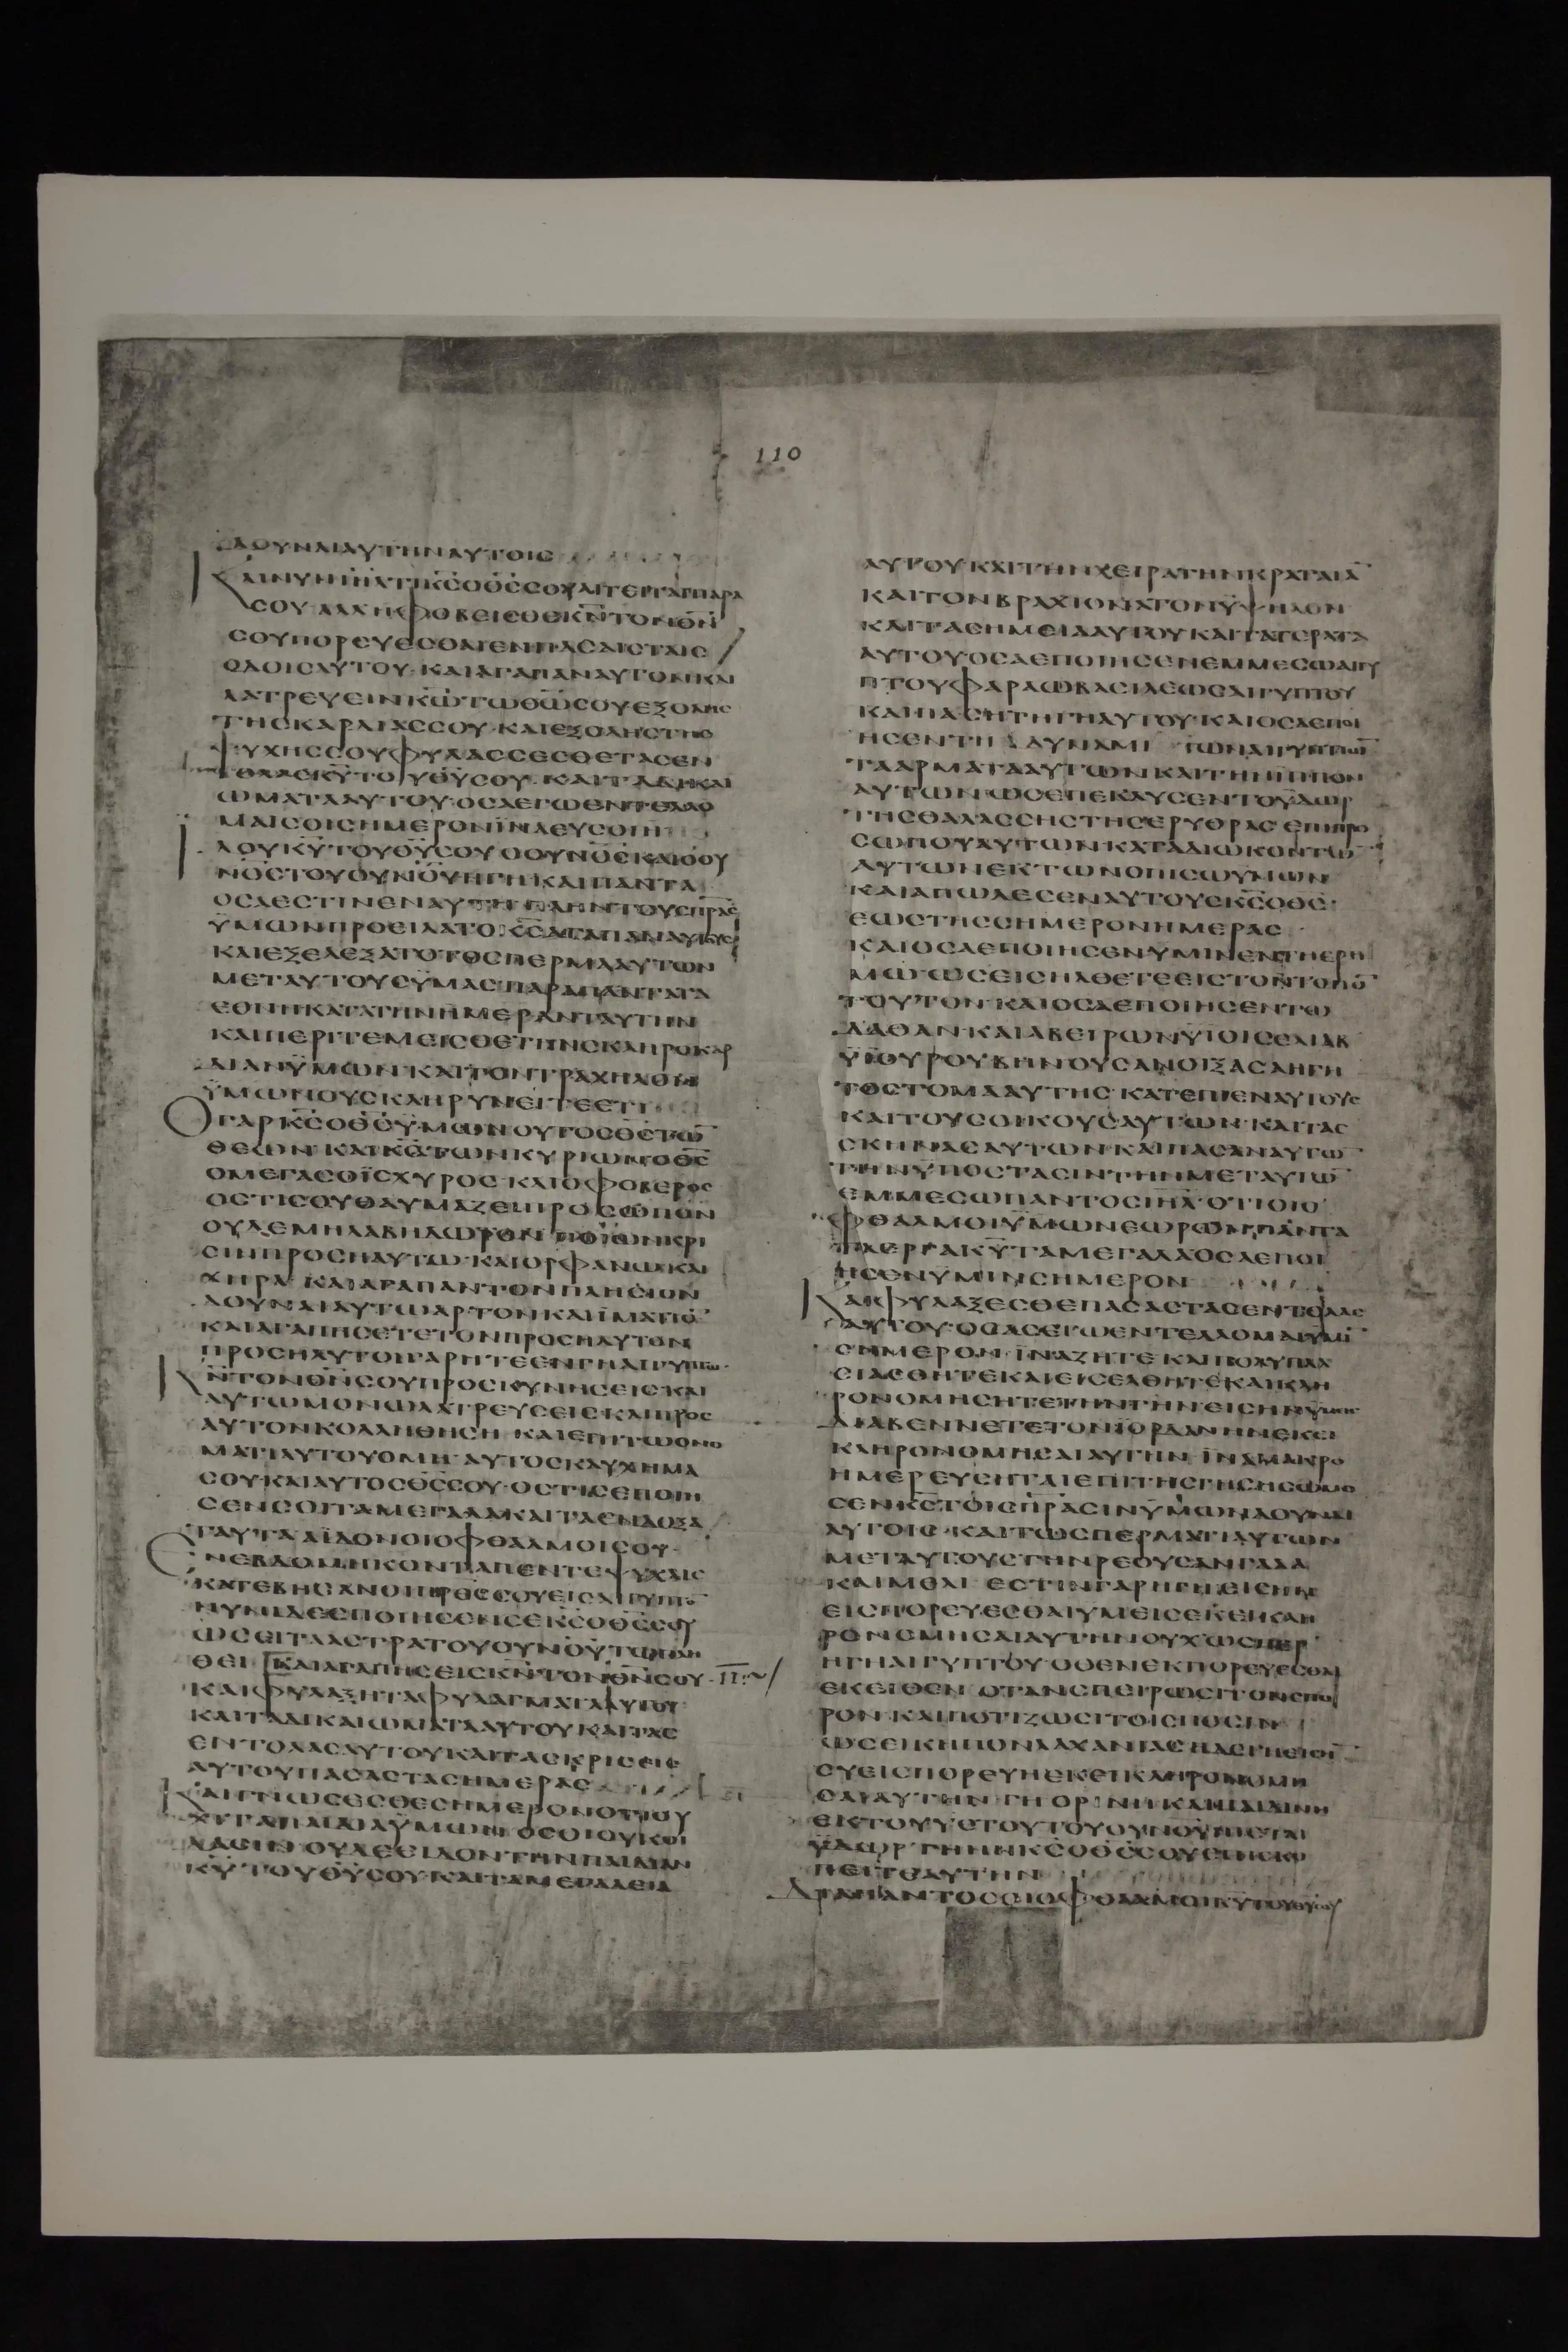 110
ΔΟΥΝΑΙΑΥΤΗΝΑΥΤΟΙΣ
ΚΑΙΝΥΝΙΗΛΤΙΚ̅Σ̅ΟΘ̅Σ̅ΣΟΥΑΙΤΕΙΤΑΙΠΑΡΑ
ΣΟΥΑΛΛΗΦΟΒΕΙΣΘΑΙΚ̅Ν̅ΤΟΝΘ̅Ν̅
ΣΟΥΠΟΡΕΥΕΣΘΑΙΕΝΠΑΣΑΙΣΤΑΙΣ
ΟΔΟΙΣΑΥΤΟΥ·ΚΑΙΑΓΑΠΑΝΑΥΤΟΝΚΑΙ
ΛΑΤΡΕΥΕΙΝΚ̅Ω̅ΤΩΘ̅Ω̅ΣΟΥΕΞΟΛΗΣ
ΤΗΣΚΑΡΔΙΑΣΣΟΥ·ΚΑΙΕΞΟΛΗΣΤΗΣ
ΨΥΧΗΣΣΟΥΦΥΛΑΣΣΕΣΘΕΤΑΣΕΝ
ΤΟΛΑΣΚ̅Υ̅ΤΟΥΘ̅Υ̅ΣΟΥ·ΚΑΙΤΑΔΙΚΑΙ
ΩΜΑΤΑΑΥΤΟΥ·ΟΣΑΕΓΩΕΝΤΕΛΛΟ
ΜΑΙΣΟΙΣΗΜΕΡΟΝΪΝΑΕΥΣΟΙΗ
ΪΔΟΥΚ̅Υ̅ΤΟΥΘ̅Υ̅ΣΟΥΟΟΥΝΟΣΚΑΙΟΟΥ
ΝΟΣΤΟΥΟΥΝΟΥΗΓΗΚΑΙΠΑΝΤΑ
ΟΣΑΕΣΤΙΝΕΝΑΥΤΗΠΛΗΝΤΟΥΣΠ̅Ρ̅ΑΣ
ΫΜΩΝΠΡΟΕΙΛΑΤΟΚ̅Σ̅ΑΓΑΠΑΝΑΥΤΟΥΣ
ΚΑΙΕΞΕΛΕΞΑΤΟΤΟΣΠΕΡΜΑΑΥΤΩΝ
ΜΕΤΑΥΤΟΥΣΫΜΑΣΠΑΡΑΠΑΝΤΑΤΑ
ΕΘΝΗΚΑΤΑΤΗΝΗΜΕΡΑΝΤΑΥΤΗΝ
ΚΑΙΠΕΡΙΤΕΜΕΙΣΘΕΤΗΝΣΚΛΗΡΟΚΑΡ
ΔΙΑΝΫΜΩΝ·ΚΑΙΤΟΝΤΡΑΧΗΛΟΝ
ΫΜΩΝΟΥΣΚΛΗΡΥΝΕΙΤΕΕΤΙ
ΟΓΑΡΚ̅Σ̅ΟΘ̅Σ̅ΫΜΩΝΟΥΤΟΣΘ̅Σ̅ΤΩ̅
ΘΕΩΝ·ΚΑΙΚ̅Σ̅ΤΩΝΚΥΡΙΩΝΟΘ̅Σ̅
ΟΜΕΓΑΣΟΪΣΧΥΡΟΣ·ΚΑΙΟΦΟΒΕΡΟΣ
ΟΣΤΙΣΟΥΘΑΥΜΑΖΕΙΠΡΟΣΩΠΟΝ
ΟΥΔΕΜΗΛΑΒΗΔΩΡΟΝΠΟΙΩΝΚΡΙ
ΣΙΝΠΡΟΣΗΛΥΤΩ·ΚΑΙΟΡΦΑΝΩΚΑΙ
ΧΗΡΑ·ΚΑΙΑΓΑΠΑΝΤΟΝΠΛΗΣΙΟΝ
ΔΟΥΝΑΙΑΥΤΩΑΡΤΟΝΚΑΙΪΜΑΤΙΟ̅
ΚΑΙΑΓΑΠΗΣΕΤΕΤΟΝΠΡΟΣΗΛΥΤΟΝ
ΠΡΟΣΗΛΥΤΟΙΓΑΡΗΤΕΕΝΓΗΑΙΓΥΠΤΩ·
Κ̅Ν̅ΤΟΝΘ̅Ν̅ΣΟΥΠΡΟΣΚΥΝΗΣΕΙΣΚΑΙ
ΑΥΤΩΜΟΝΩΛΑΤΡΕΥΣΕΙΣΚΑΙΠΡΟΣ
ΑΥΤΟΝΚΟΛΛΗΘΗΣΗ·ΚΑΙΕΠΙΤΩΟΝΟ
ΜΑΤΙΑΥΤΟΥΟΜΗ·ΑΥΤΟΣΚΑΥΧΗΜΑ
ΣΟΥ·ΚΑΙΑΥΤΟΣΘ̅Σ̅ΣΟΥ·ΟΣΤΙΣΕΠΟΙΗ
ΣΕΝΣΟΙΤΑΜΕΓΑΛΑΚΑΙΤΑΕΝΔΟΞΑ
ΤΑΥΤΑΑΪΔΟΝΟΙΟΦΘΑΛΜΟΙΣΟΥ·
ΕΝΕΒΔΟΜΗΚΟΝΤΑΠΕΝΤΕΨΥΧΑΙΣ
ΚΑΤΕΒΗΣΑΝΟΙΠ̅Ρ̅Ε̅Σ̅ΣΟΥΕΙΣΑΙΓΥΠΤΟ̅
ΝΥΝΙΔΕΕΠΟΙΗΣΕΝΣΕΚ̅Σ̅ΟΘ̅Σ̅ΣΟΥ
ΩΣΕΙΤΑΑΣΤΡΑΤΟΥΟΥΝΟΥΤΩΠΛΗ
ΘΕΙ·ΚΑΙΑΓΑΠΗΣΕΙΣΚ̅Ν̅ΤΟΝΘ̅Ν̅ΣΟΥ·
ΚΑΙΦΥΛΑΞΗΤΑΦΥΛΑΓΜΑΤΑΑΥΤΟΥ·
ΚΑΙΤΑΔΙΚΑΙΩΜΑΤΑΑΥΤΟΥΚΑΙΤΑΣ
ΕΝΤΟΛΑΣΑΥΤΟΥΚΑΙΤΑΣΚΡΙΣΕΙΣ
ΑΥΤΟΥΠΑΣΑΣΤΑΣΗΜΕΡΑΣ
ΚΑΙΓΝΩΣΕΣΘΕΣΗΜΕΡΟΝΟΤΙΟΥ
ΧΙΤΑΠΑΙΔΙΑΫΜΩΝ·ΟΣΟΙΟΥΚΟΙ
ΔΑΣΙΝ·ΟΥΔΕΕΙΔΟΝΤΗΝΠΑΙΔΙΑΝ
Κ̅Υ̅ΤΟΥΘ̅Υ̅ΣΟΥ·ΚΑΙΤΑΜΕΓΑΛΕΙΑ
ΑΥΤΟΥΚΑΙΤΗΝΧΕΙΡΑΤΗΝΚΡΑΤΑΙΑ̅
ΚΑΙΤΟΝΒΡΑΧΙΟΝΑΤΟΝΫΨΗΛΟΝ
ΚΑΙΤΑΣΗΜΕΙΑΑΥΤΟΥΚΑΙΤΑΤΕΡΑΤΑ
ΑΥΤΟΥ·ΟΣΑΕΠΟΙΗΣΕΝΕΜΜΕΣΩΑΙΓΥ
ΠΤΟΥΦΑΡΑΩΒΑΣΙΛΕΩΣΑΙΓΥΠΤΟΥ
ΚΑΙΠΑΣΗΤΗΓΗΑΥΤΟΥ·ΚΑΙΟΣΑΕΠΟΙ
ΗΣΕΝΤΗΔΥΝΑΜΙΤΩΝΑΙΓΥΠΤΙΩ̅
ΤΑΑΡΜΑΤΑΑΥΤΩΝΚΑΙΤΗΝΙΠΠΟΝ
ΑΥΤΩΝ·ΩΣΕΠΕΚΛΥΣΕΝΤΟΫΔΩΡ
ΤΗΣΘΑΛΑΣΣΗΣΤΗΣΕΡΥΘΡΑΣΕΠΙΠΡΟ
ΣΩΠΟΥΑΥΤΩΝΚΑΤΑΔΙΩΚΟΝΤΩ̅
ΑΥΤΩΝΕΚΤΩΝΟΠΙΣΩΥΜΩΝ
ΚΑΙΑΠΩΛΕΣΕΝΑΥΤΟΥΣΚ̅Σ̅ΟΘ̅Σ̅·
ΕΩΣΤΗΣΣΗΜΕΡΟΝΗΜΕΡΑΣ
ΚΑΙΟΣΑΕΠΟΙΗΣΕΝΥΜΙΝΕΝΤΗΕΡΗ
ΜΩΩΣΕΙΣΗΛΘΕΤΕΕΙΣΤΟΝΤΟΠΟ̅
ΤΟΥΤΟΝ·ΚΑΙΟΣΑΕΠΟΙΗΣΕΝΤΩ
ΔΑΘΑΝ·ΚΑΙΑΒΕΙΡΩΝΫΙΟΙΣΕΛΙΑΒ
ΫΙΟΥΡΟΥΒΗΝΟΥΣΑΝΟΙΞΑΣΑΗΓΗ
ΤΟΣΤΟΜΑΑΥΤΗΣ·ΚΑΤΕΠΙΕΝΑΥΤΟΥΣ
ΚΑΙΤΟΥΣΟΙΚΟΥΣΑΥΤΩΝ·ΚΑΙΤΑΣ
ΣΚΗΝΑΣΑΥΤΩΝΚΑΙΠΑΣΑΝΑΥΤΩ̅
ΤΗΝΫΠΟΣΤΑΣΙΝΤΗΝΜΕΤΑΥΤΩ̅
ΕΜΜΕΣΩΠΑΝΤΟΣΙΗ̅Λ̅·ΟΤΙΟΙΟ
ΦΘΑΛΜΟΙΫΜΩΝΕΩΡΩΝΠΑΝΤΑ
ΤΑΕΡΓΑΚ̅Υ̅ΤΑΜΕΓΑΛΑΟΣΑΕΠΟΙ
ΗΣΕΝΥΜΙΝΣΗΜΕΡΟΝ
ΚΑΙΦΥΛΑΞΕΣΘΕΠΑΣΑΣΤΑΣΕΝΤΟΛΑΣ
ΑΥΤΟΥ·ΟΣΑΣΕΓΩΕΝΤΕΛΛΟΜΑΙΥΜΙ̅
ΣΗΜΕΡΟΝ·ΪΝΑΖΗΤΕΚΑΙΠΟΛΥΠΛΑ
ΣΙΑΣΘΗΤΕΚΑΙΕΙΣΕΛΘΗΤΕΚΑΙΚΛΗ
ΡΟΝΟΜΗΣΗΤΕΤΗΝΓΗΝΕΙΣΗΝΫΜΕΙΣ
ΔΙΑΒΕΝΝΕΤΕΤΟΝΪΟΡΔΑΝΗΝΕΚΕΙ
ΚΛΗΡΟΝΟΜΗΣΑΙΑΥΤΗΝ·ΪΝΑΜΑΚΡΟ
ΗΜΕΡΕΥΣΗΤΑΙΕΠΙΤΗΣΓΗΣΗΣΩΜΟ
ΣΕΝΚ̅Σ̅ΤΟΙΣΠ̅Ρ̅ΑΣΙΝΫΜΩΝΔΟΥΝΑΙ
ΑΥΤΟΙΣ·ΚΑΙΤΩΣΠΕΡΜΑΤΙΑΥΤΩΝ
ΜΕΤΑΥΤΟΥΣΓΗΝΡΕΟΥΣΑΝΓΑΛΑ
ΚΑΙΜΕΛΙ·ΕΣΤΙΝΓΑΡΗΓΗΕΙΣΗΝ
ΕΙΣΠΟΡΕΥΕΣΘΑΙΥΜΕΙΣΕΚΕΙΚΛΗ
ΡΟΝΟΜΗΣΑΙΑΥΤΗΝΟΥΧΩΣΠΕΡ
ΗΓΗΑΙΓΥΠΤΟΥ·ΟΘΕΝΕΚΠΟΡΕΥΕΣΘΑΙ
ΕΚΕΙΘΕΝ·ΟΤΑΝΣΠΕΙΡΩΣΙΤΟΝΣΠΟ
ΡΟΝ·ΚΑΙΠΟΤΙΖΩΣΙΤΟΙΣΠΟΣΙΝ
ΩΣΕΙΚΗΠΟΝΛΑΧΑΝΙΑΣΗΔΕΓΗΕΙΣΗ̅
ΣΥΕΙΣΠΟΡΕΥΗΕΚΕΙΚΛΗΡΟΝΟΜΗ
ΣΑΙΑΥΤΗΝ·ΓΗΟΡΙΝΗΚΑΙΠΑΙΔΙΝΗ
ΕΚΤΟΥΥΕΤΟΥΤΟΥΟΥΝΟΥΠΙΕΤΑΙ
ΫΔΩΡ·ΓΗΗΝΚ̅Σ̅ΟΘ̅Σ̅ΣΟΥΕΠΙΣΚΟ
ΠΕΙΤΕΑΥΤΗΝ
ΔΙΑΠΑΝΤΟΣΟΙΟΦΘΑΛΜΟΙΚ̅Υ̅ΤΟΥΘ̅Υ̅ΣΟΥ